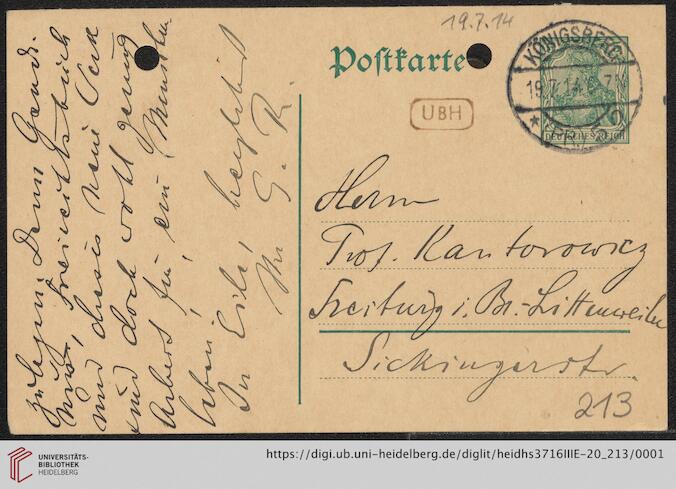 19.7.14
Postkarte
KÖNIGSBERG
19.7.14
DEUTSCHES REICH
UBH
Herrn
Prof. Kantorowicz
Freiburg i. Br.-Littenweiler
Sickingerstr.
213
zu legen. Denn Gandi.
und dieses neue Verk
und doch wohl genug
Arbeit für ein Menschen
leben!
In Eile, herzlichst
Ihr G. R.
UNIVERSITÄTS-
BIBLIOTHEK
HEIDELBERG
https://digi.ub.uni-heidelberg.de/diglit/heidhs3716IIIE-20_213/0001